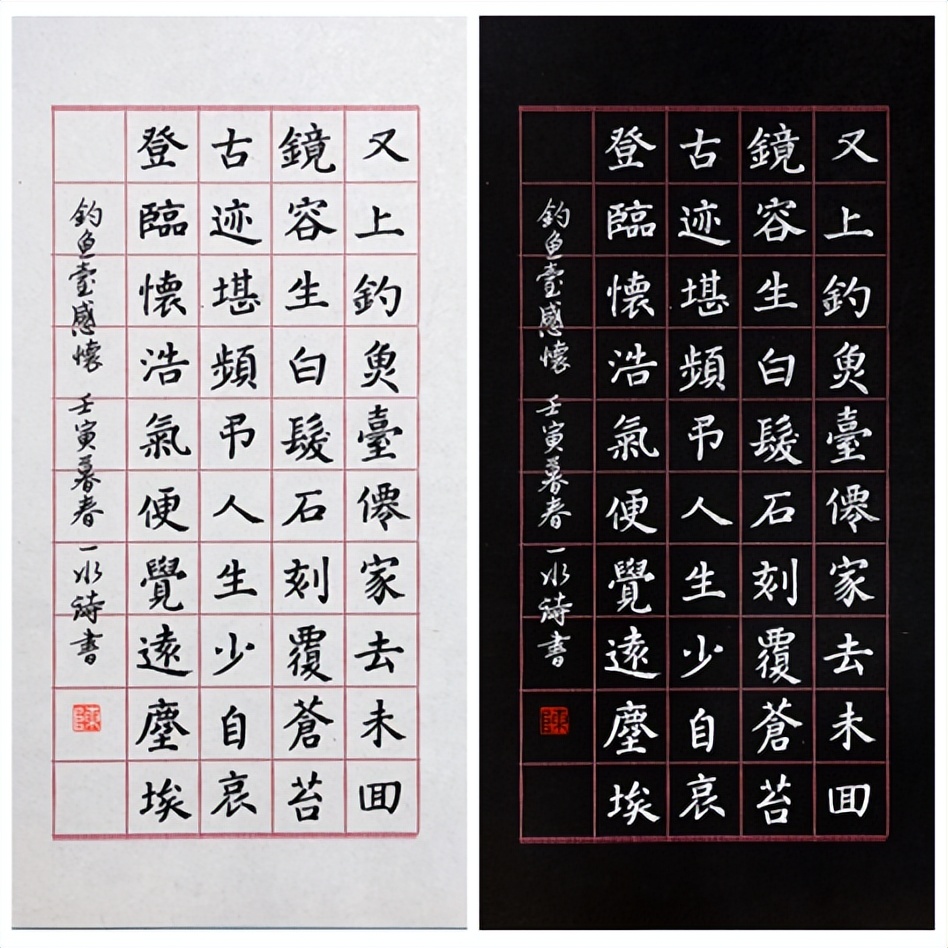 又上釣魚臺僊家去未囬
鏡容生白髮石刻覆蒼苔
古迹堪頻吊人生少自哀
登臨懷浩氣便覺遠塵埃
釣魚臺感懷 壬寅暮春 一水詩書
又上釣魚臺僊家去未囬
鏡容生白髮石刻覆蒼苔
古迹堪頻吊人生少自哀
登臨懷浩氣便覺遠塵埃
釣魚臺感懷 壬寅暮春 一水詩書